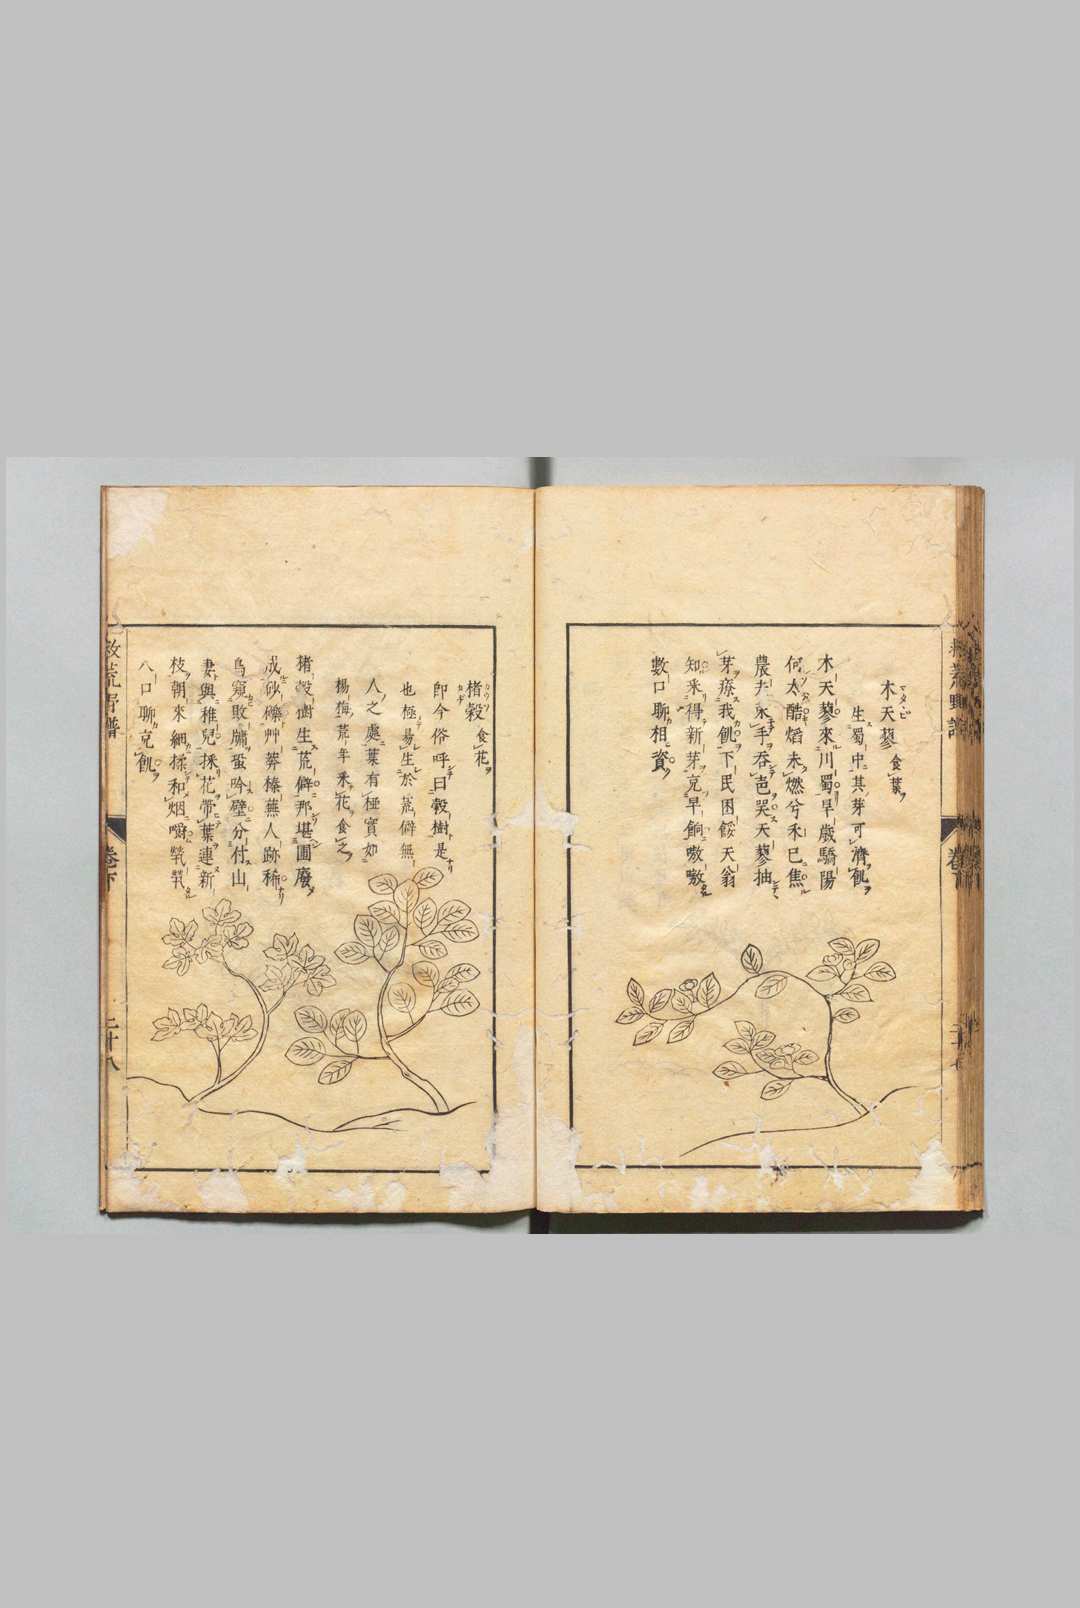 木天蓼 食葉
マタヽビ
生蜀中其芽可濟飢
木天蓼來川蜀旱歲驕陽
何太酷熖未燃兮禾已焦
農夫束手吞聲哭天蓼抽
芽療我飢下民困餒天翁
知采得新芽克早餉嗷嗷
數口聊相資
楮穀 食花
即今俗呼曰穀樹是
也極易生於荒僻無
人之處葉有椏實如
楊梅荒年采花食之
楮穀樹生荒僻那堪圃廢
成砂礫艸莽榛蕪人跡稀
鳥窺敗牖蛩吟壁分付山
妻與稚兒採花帶葉連新
枝朝來細揉和烟嚼煢煢
八口聊克飢
救荒野譜
卷下
二十八